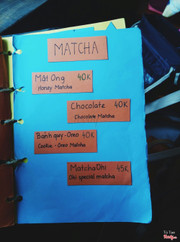 MATCHA
Mật Ong 40K
Honey Matcha
Chocolate 40K
Chocolate Matcha
Bánh quy-Oreo 40K
Cookie - Oreo Matcha
MatchaOhi 45K
Ohi special matcha